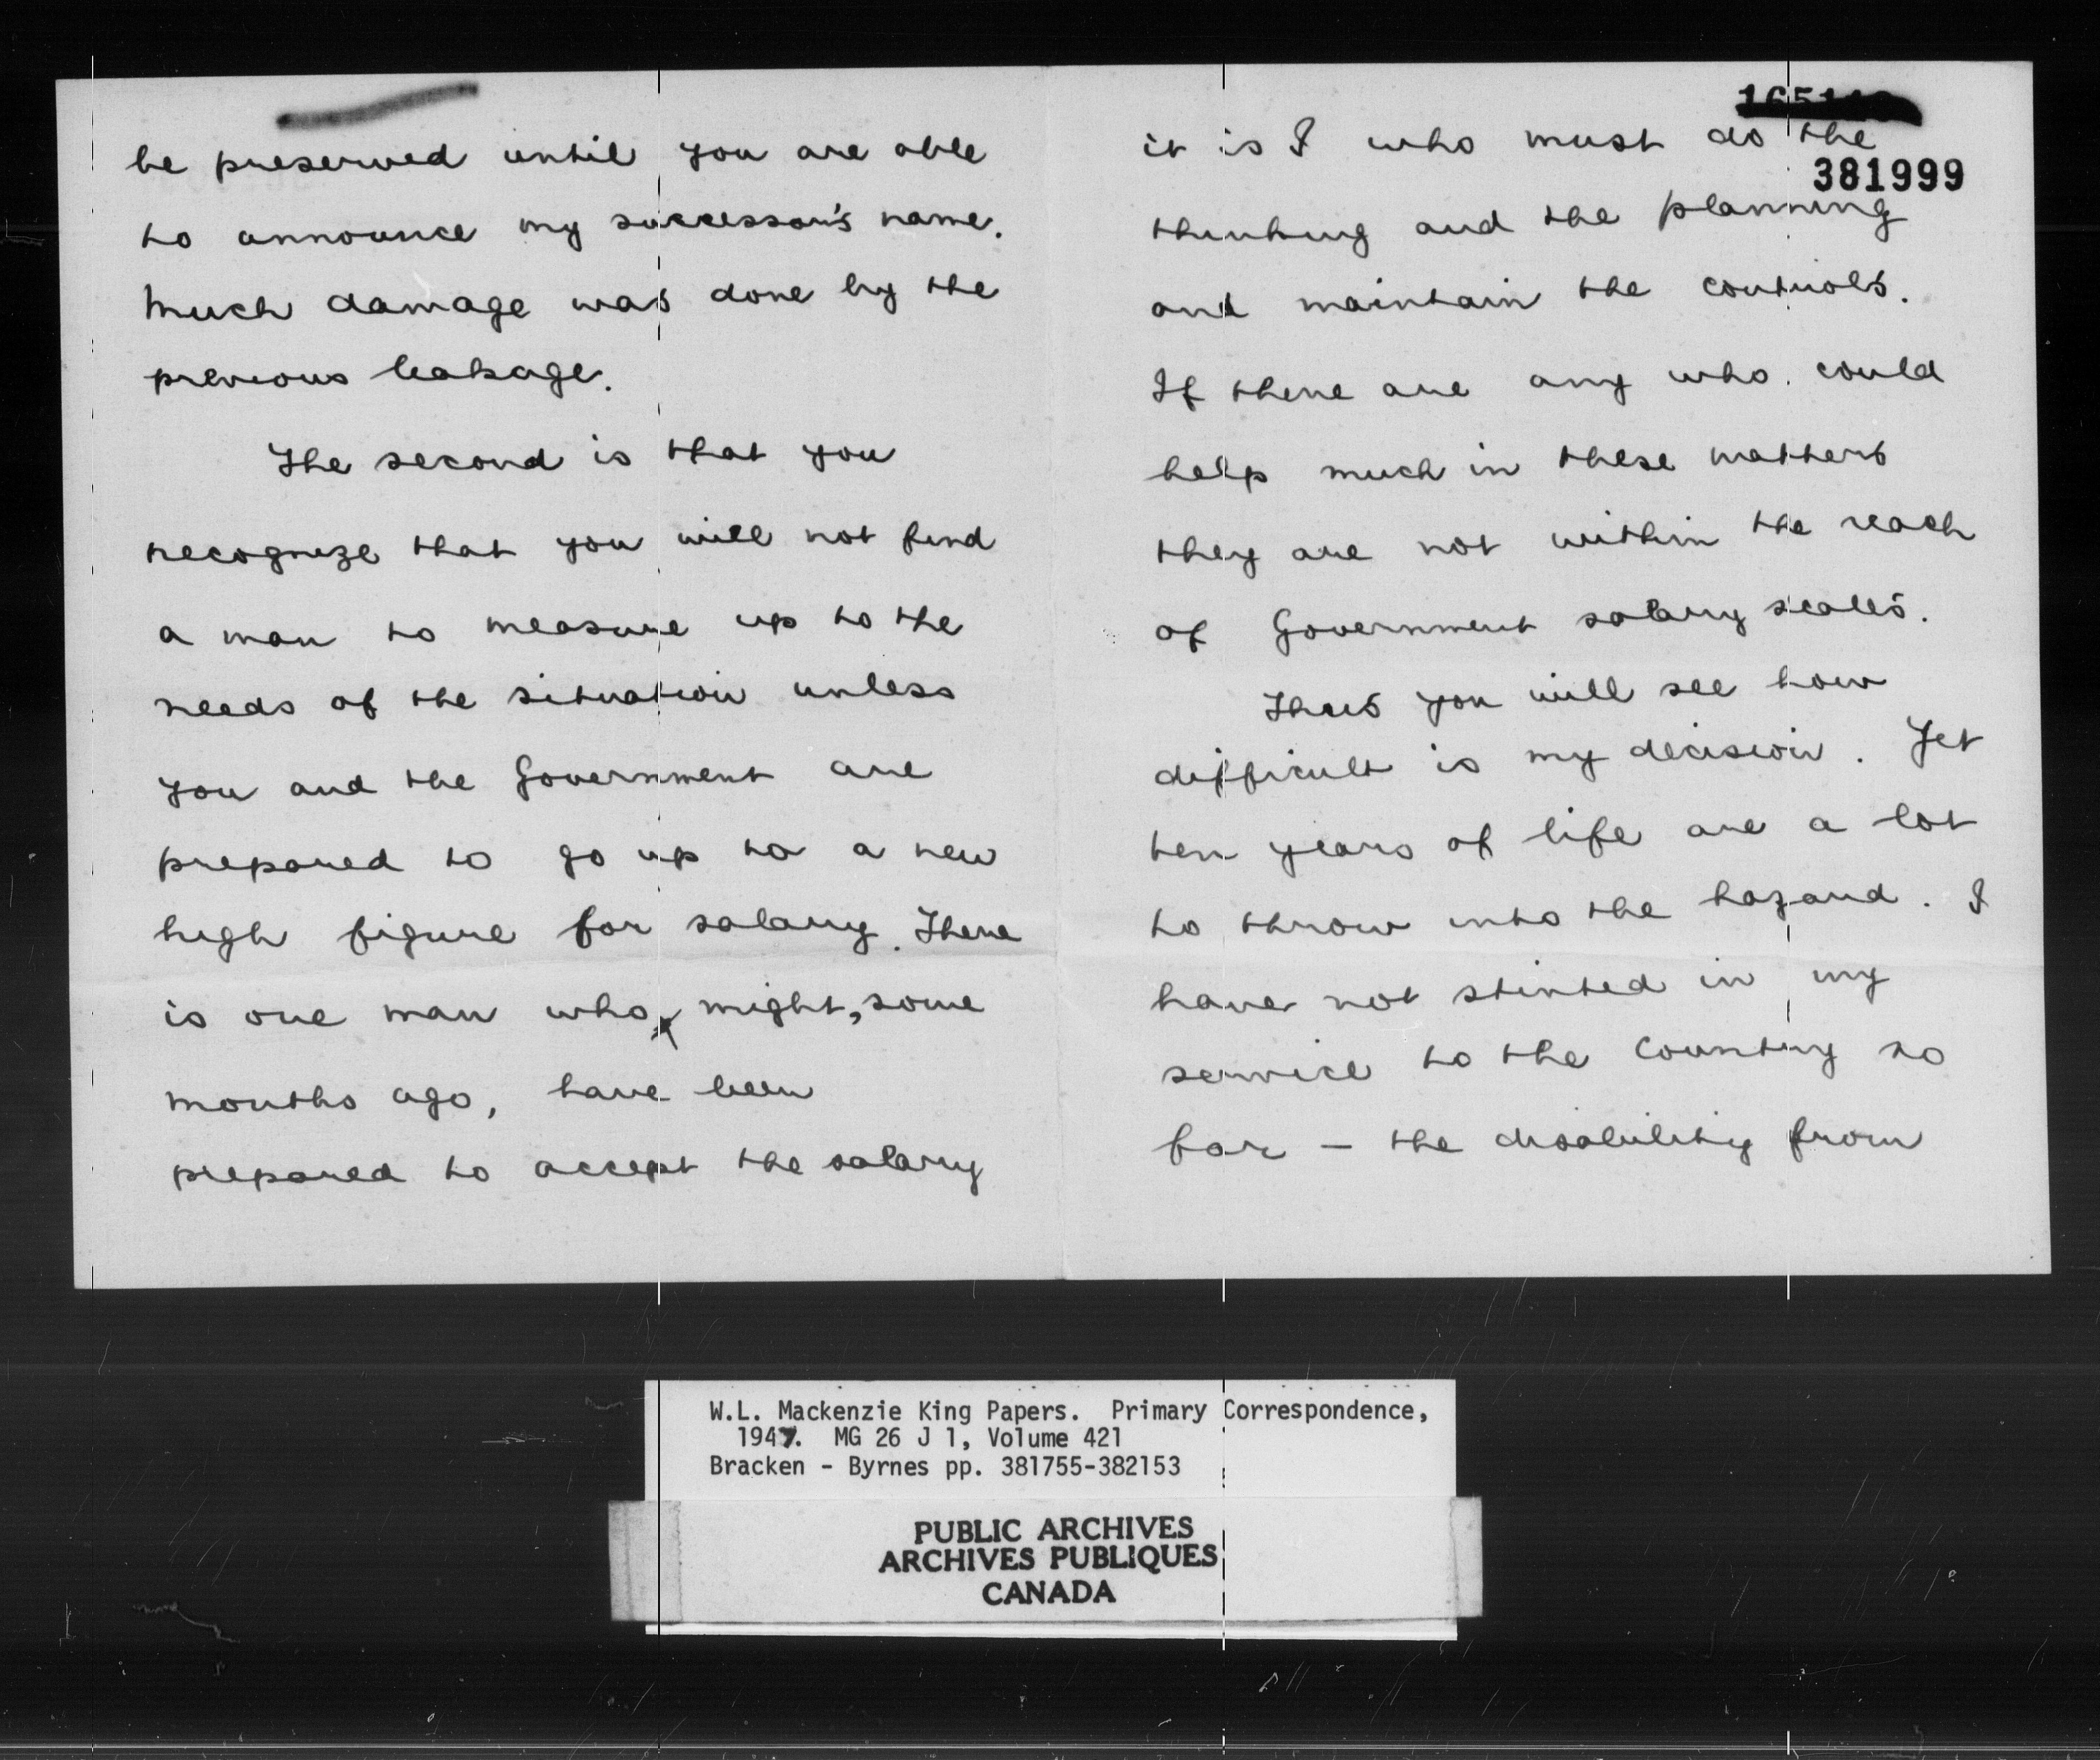 be preserved until you are able
to announce my successor's name.
Much damage was done by the
previous leakage.
The second is that you
recognize that you will not find
a man to measure up to the
needs of the situation unless
you and the Government are
prepared to go up to a new
high figure for salary. There
is one man who might, some
months ago, have been
prepared to accept the salary
381999
it is I who must do the
thinking and the planning
and maintain the controls.
If there are any who could
help much in these matters
they are not within the reach
of Government salary scales.
Thus you will see how
difficult is my decision. Yet
ten years of life are a lot
to throw into the hazard. I
have not stinted in my
service to the Country so
far – the disability from
W.L. Mackenzie King Papers. Primary Correspondence,
1947. MG 26 J 1, Volume 421
Bracken - Byrnes pp. 381755-382153
PUBLIC ARCHIVES
ARCHIVES PUBLIQUES
CANADA